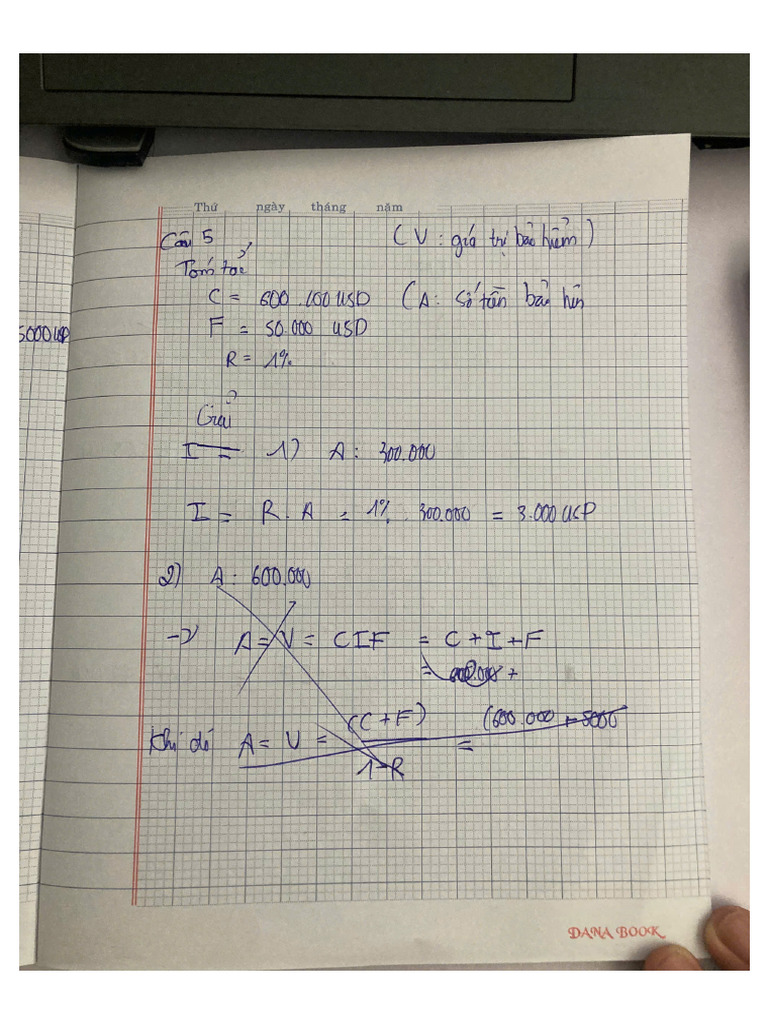 5000 USD
Thứ ngày tháng năm
Câu 5 (V: giá trị bảo hiểm)
Tóm tắt
C = 600.000 USD (A: Số tiền bảo hiểm
F = 50.000 USD
R = 1%
Giải
I = 1) A: 300.000
I = R.A = 1%. 300.000 = 3.000 USD
2) A: 600.000
→ A = V = CIF = C + I + F
= 600.000 +
Khi đó A = V = (C + F) / 1-R = (600.000 + 5000
DANA BOOK